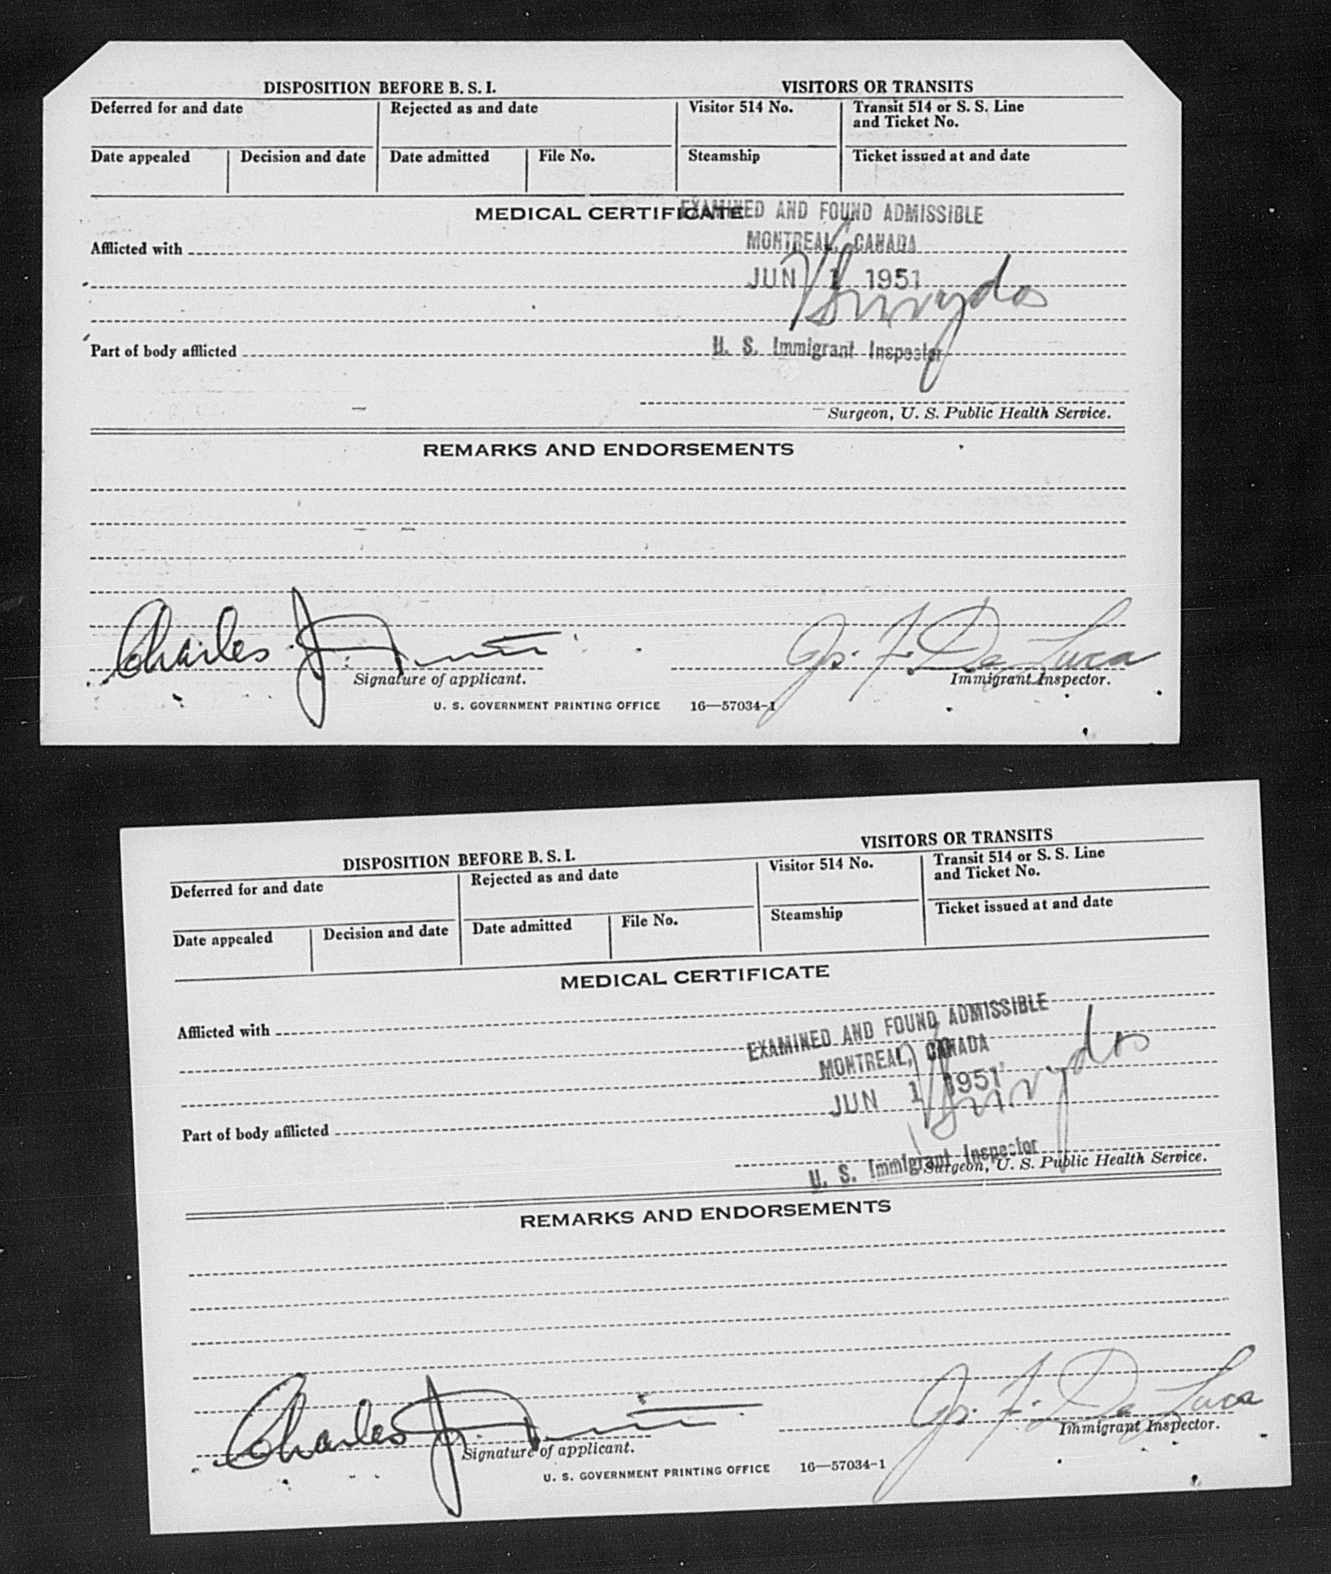 DISPOSITION BEFORE B. S. I.
VISITORS OR TRANSITS
Deferred for and date
Rejected as and date
Visitor 514 No.
Transit 514 or S. S. Line
and Ticket No.
Date appealed
Decision and date
Date admitted
File No.
Steamship
Ticket issued at and date
MEDICAL CERTIFICATE
EXAMINED AND FOUND ADMISSIBLE
Afflicted with
MONTREAL, CANADA
JUN 1 1951
Part of body afflicted
U. S. Immigrant Inspector
Surgeon, U. S. Public Health Service.
REMARKS AND ENDORSEMENTS
Charles J.
F. De Luca
Signature of applicant.
Immigrant Inspector.
U. S. GOVERNMENT PRINTING OFFICE 16—57034-1
DISPOSITION BEFORE B. S. I.
VISITORS OR TRANSITS
Deferred for and date
Rejected as and date
Visitor 514 No.
Transit 514 or S. S. Line
and Ticket No.
Date appealed
Decision and date
Date admitted
File No.
Steamship
Ticket issued at and date
MEDICAL CERTIFICATE
Afflicted with
EXAMINED AND FOUND ADMISSIBLE
MONTREAL, CANADA
JUN 1 1951
Part of body afflicted
U. S. Immigrant Inspector
Surgeon, U. S. Public Health Service.
REMARKS AND ENDORSEMENTS
Charles J.
F. De Luca
Signature of applicant.
Immigrant Inspector.
U. S. GOVERNMENT PRINTING OFFICE 16—57034-1